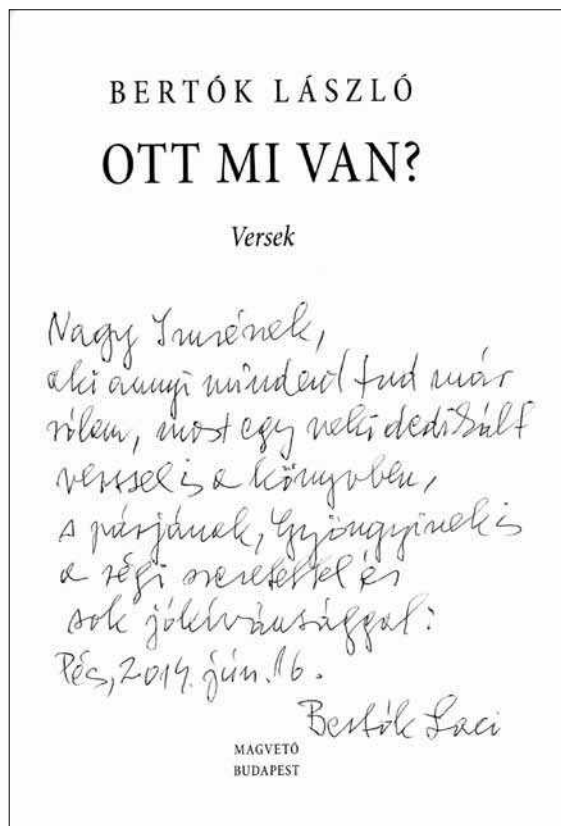 BERTÓK LÁSZLÓ
OTT MI VAN?
Versek
Nagy Imrének,
aki annyi mindent tud már
rólam, most egy neki dedikált
verssel is a könyvben,
s párjának, Gyöngyinek is
a régi szeretettel és
sok jókívánsággal:
Pécs, 2014. jún. 16.
Bertók Laci
MAGVETŐ
BUDAPEST